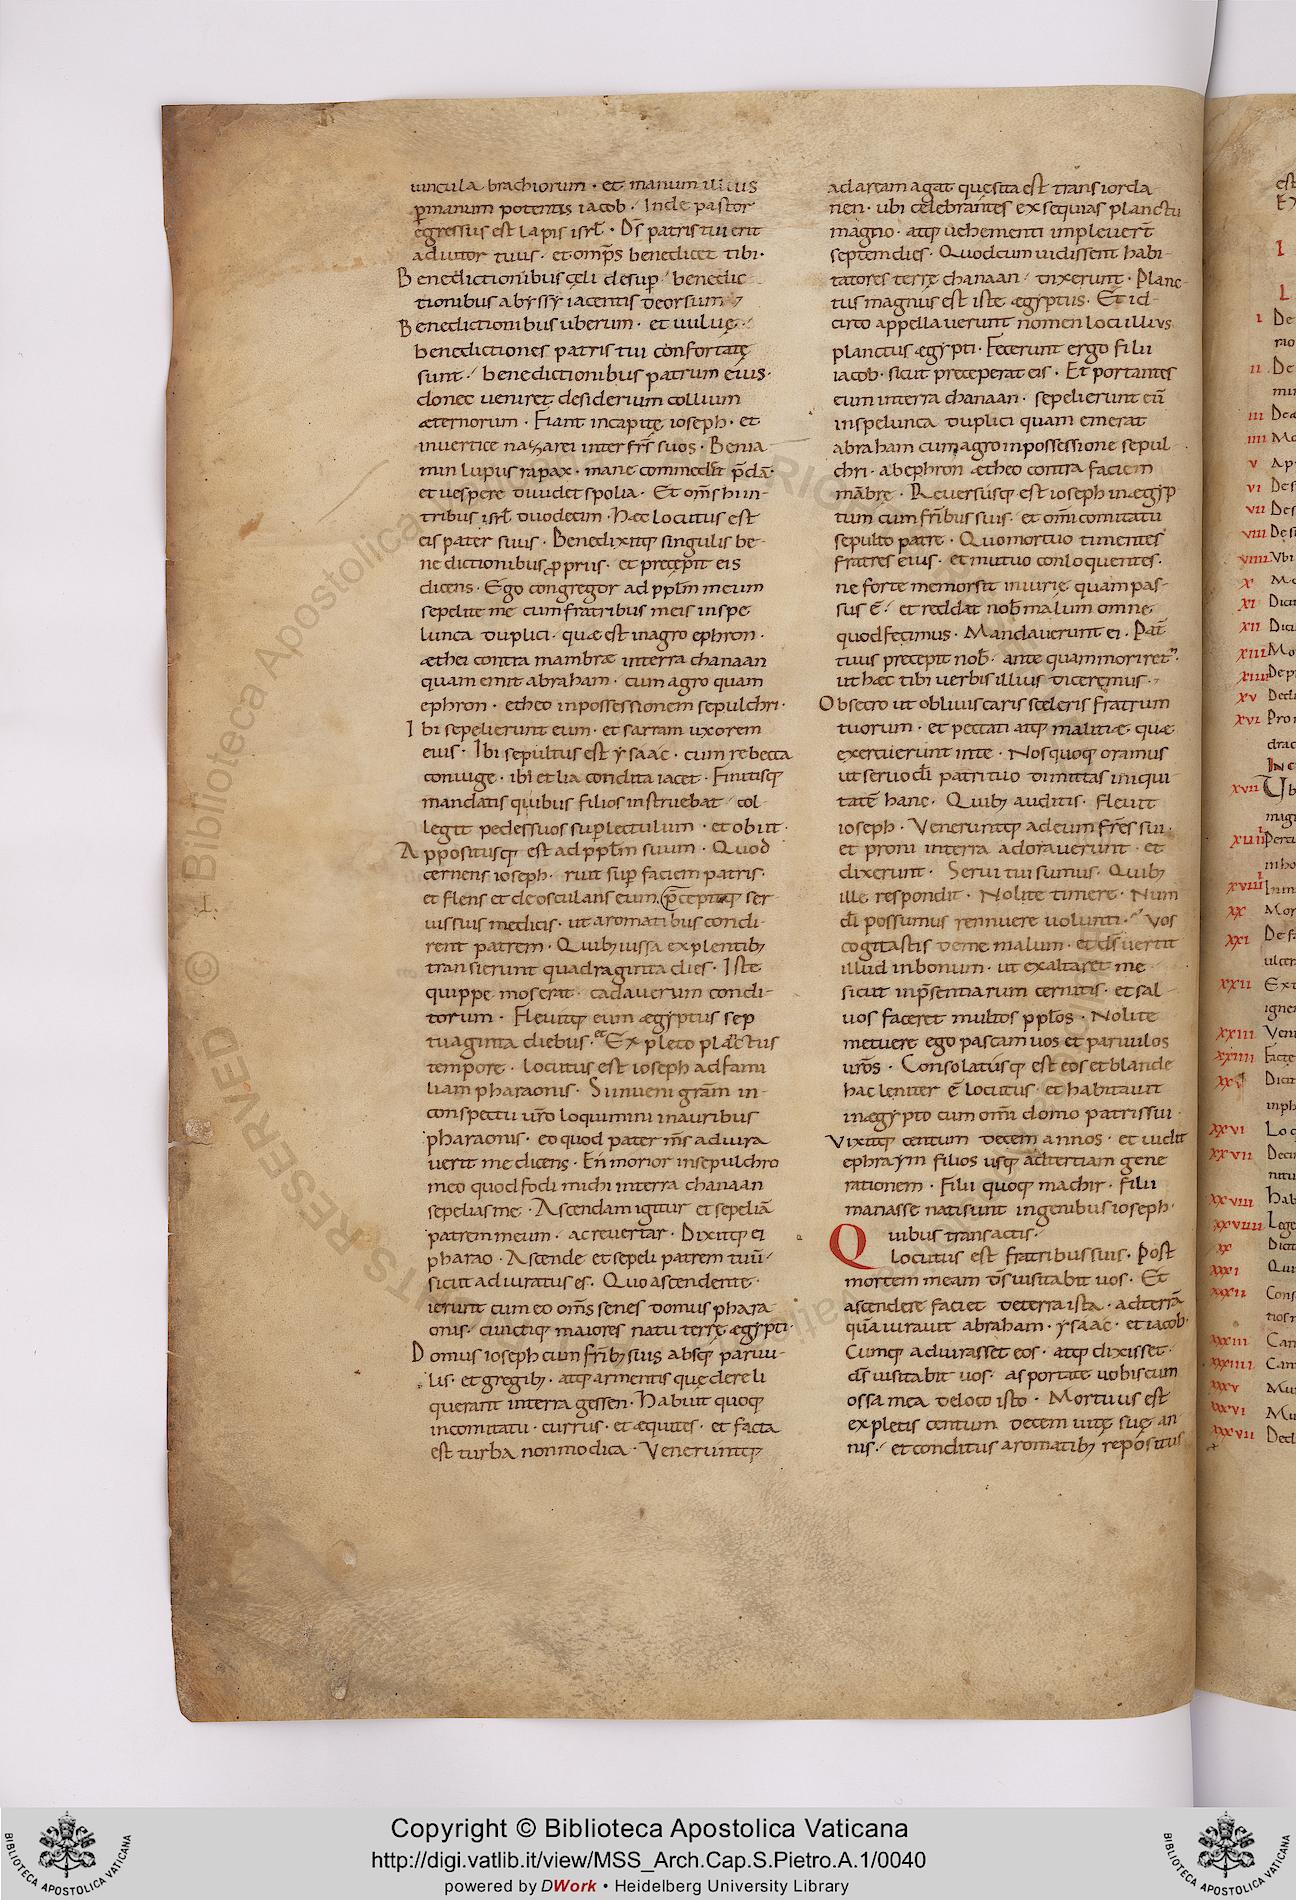 uincula brachiorum · et manum illius
p̄manum potentis iacob · Inde pastor
egressus est lapis isrł · D̄s patris tui erit
adiutor tuus · et omp̄s benedicet tibi ·
Benedictionibus cęli desup̄ · benedic
tionibus abyssy iacentis deorsum
Benedictionibus uberum · et uuluę ·
benedictiones patris tui confortatę
sunt · benedictionibus patrum eius ·
donec ueniret desiderium collium
æternorum · Fiant incapite ioseph · et
inuertice nazarei inter fr̄s suos · Benia
min lupus rapax · mane commedet p̄dā ·
et uespere diuidet spolia · Et om̄s hi in
tribus isrł duodecim · Hæc locutus est
eis pater suus · Benedixitq; singulis be
nedictionibus propriis · et precepit eis
dicens · Ego congregor ad pplm̄ meum
sepelite me cum fratribus meis inspe
lunca duplici · quæ est inagro ephron ·
æthei contra mambræ interra chanaan
quam emit abraham · cum agro quam
ephron · etheo inpossessionem sepulchri ·
Ibi sepelierunt eum · et sarram uxorem
eius · Ibi sepultus est ysaac · cum rebecca
coniuge · ibi et lia condita iacet · Finitisq;
mandatis quibus filios instruebat · col
legit pedes suos sup̄ lectulum · et obiit ·
Appositusq; est ad pplm̄ suum · Quod
cernens ioseph · ruit sup̄ faciem patris ·
et flens et deosculans eum p̄cepitq; ser
uis suis medicis · ut aromatibus condi
rent patrem · Quib; iussa explentib;
transierunt quadraginta dies · Iste
quippe mos erat · cadauerum condi
torum · Fleuitq; eum ægyptus sep
tuaginta diebus · et Expleto planctus
tempore · locutus est ioseph ad fami
liam pharaonis · Si inueni gram̄ in
conspectu uro̅ loquimini inauribus
pharaonis · eo quod pater m̄s adiura
uerit me dicens · En̄ morior insepulchro
meo quod fodi michi interra chanaan
sepelias me · Ascendam igitur et sepeliā
patrem meum · ac reuertar · Dixitq; ei
pharao · Ascende et sepeli patrem tuū ·
sicut adiuratus es · Quo ascendente ·
ierunt cum eo om̄s senes domus phara
onis · cunctiq; maiores natu terrę ægypti ·
Domus ioseph cum fr̄ib; suis absq; paruu
lis · et gregib; · atq; armentis quę dereli
querant interra gessen · Habuit quoq;
incomitatu · currus · et æquites · et facta
est turba non modica · Veneruntq;
ad aream agat quę sita est trans iorda
nen · ubi celebrantes exsequias planctu
magno · atq; uehementi impleuert̄
septem dies · Quod cum uidissent habi
tatores terrę chanaan · dixerunt · Planc
tus magnus est iste ægyptus · Et id
circo appellauerunt nomen loci illius
planctus ægypti · Fecerunt ergo filii
iacob · sicut preceperat eis · Et portantes
eum interra chanaan · sepelierunt eū
inspelunca duplici quam emerat
abraham cum agro inpossessione sepul
chri · ab ephron ætheo contra faciem
mābre · Reuersusq; est ioseph inægyp
tum cum fr̄ibus suis · et omni comitatu
sepulto patre · Quo mortuo timentes
fratres eius · et mutuo conloquentes ·
ne forte memor sit iniurię quam pas
sus ē · et reddat nob̄ malum omne
quod fecimus · Mandauerunt ei · Pat̄
tuus precepit nob̄ · ante quam moriret̄ ·
ut hæc tibi uerbis illius diceremus ·
Obsecro ut obliuiscaris sceleris fratrum
tuorum · et peccati atq; malitiæ quæ
exercuerunt inte · Nos quoq; oramus
ut seruo dī patri tuo dimittas iniqui
tatē hanc · Quib; auditis · fleuit
ioseph · Veneruntq; ad eum fr̄es sui ·
et proni interra adorauerunt · et
dixerunt · Serui tui sumus · Quib;
ille respondit · Nolite timere · Num
dī possumus rennuere uolunti · Vos
cogitastis deme malum · et d̄s uertit
illud inbonum · ut exaltaret me
sicut inp̄sentiarum cernitis · et sal
uos faceret multos pplo̅s · Nolite
metuere ego pascam uos et paruulos
uro̅s · Consolatusq; est eos et blande
hac leniter ē locutus · et habitauit
inægypto cum omni domo patris sui ·
Vixitq; centum decem annos · et uidit
ephraym filios usq; adtertiam gene
rationem · Filii quoq; machir · filii
manasse nati sunt ingenibus ioseph ·
Quibus transactis ·
locutus est fratribus suis · Post
mortem meam d̄s uisitabit uos · Et
ascendere faciet deterra ista · adterrā
quā iurauit abraham · ysaac · et iacob ·
Cumq; adiurasset eos · atq; dixisset ·
d̄s uisitabit uos · asportate uobiscum
ossa mea deloco isto · Mortuus est
expletis centum decem uitę suę an
nis · et conditus aromatib; repositus
I
L
I De
II De
III De
IIII Mo
V Ap
VI De s
VII De s
VIII De si
VIIII Vbi
X Mo
XI Dici
XII Dici
XIII Mo
XIIII De p
XV Decl
XVI Pro
XVII Ub
XX Mor
XXI De fa
XXII Ext
XXIII Ven
XXIIII Facte
XXV Dicit
XXVI Loq
XXVII Deci
XXVIII Hab
XXVIIII Lege
XXXI Qui
XXXII Cons
XXXIII Can
XXXIIII Cam
XXXV Mu
XXXVI Mu
XXXVII Decl
Copyright © Biblioteca Apostolica Vaticana
http://digi.vatlib.it/view/MSS_Arch.Cap.S.Pietro.A.1/0040
powered by DWork • Heidelberg University Library
BIBLIOTECA APOSTOLICA VATICANA
BIBLIOTECA APOSTOLICA VATICANA